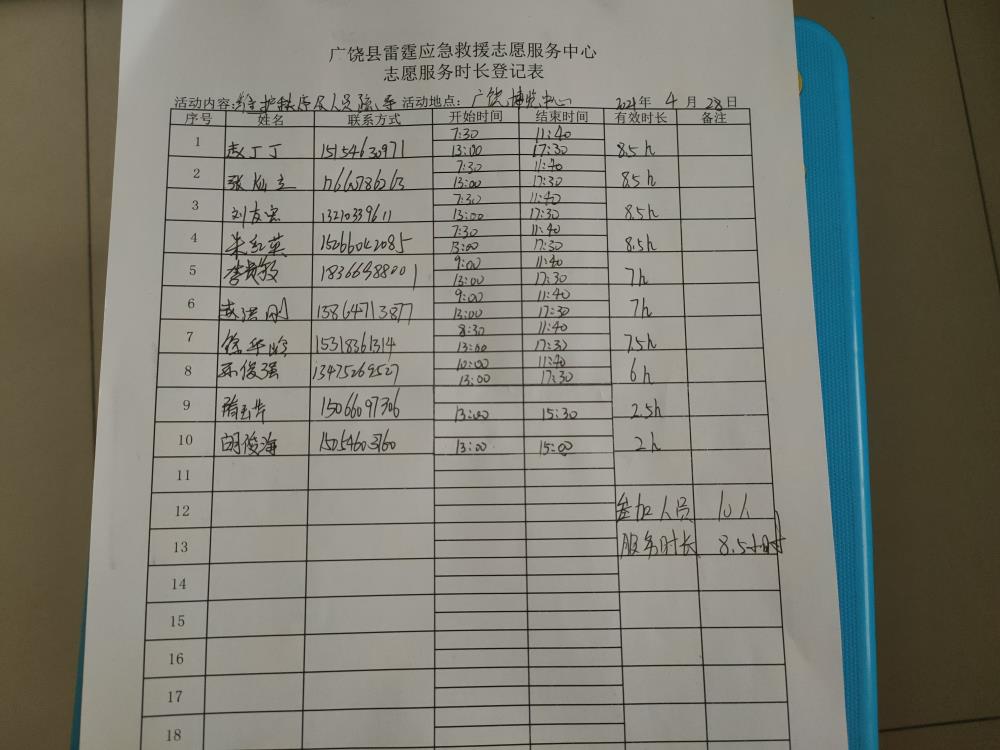 广饶县雷霆应急救援志愿服务中心
志愿服务时长登记表
活动内容:维护秩序及人员疏导 活动地点:广饶博览中心 2021年 4 月 28 日
序号 姓名 联系方式 开始时间 结束时间 有效时长 备注
7:30 11:40
1 赵丁丁 15154630971 13:00 17:30 8.5h
7:30 11:40
2 张灿立 17660786263 13:00 17:30 8.5h
7:30 11:40
3 刘友宝 13210339611 13:00 17:30 8.5h
7:30 11:40
4 朱红英 15266042085 13:00 17:30 8.5h
9:00 11:40
5 李 18366988001 13:00 17:30 7h
9:00 11:40
6 赵洪刚 13864713877 13:00 17:30 7h
8:30 11:40
7 徐华 15318361314 13:00 17:30 7.5h
10:00 11:40
8 孙俊强 13475269527 13:00 17:30 6h
9 15066097306 13:00 15:30 2.5h
10 胡俊海 15054603760 13:00 15:00 2h
11
12 参加人员 10人
13 服务时长 8.5小时
14
15
16
17
18